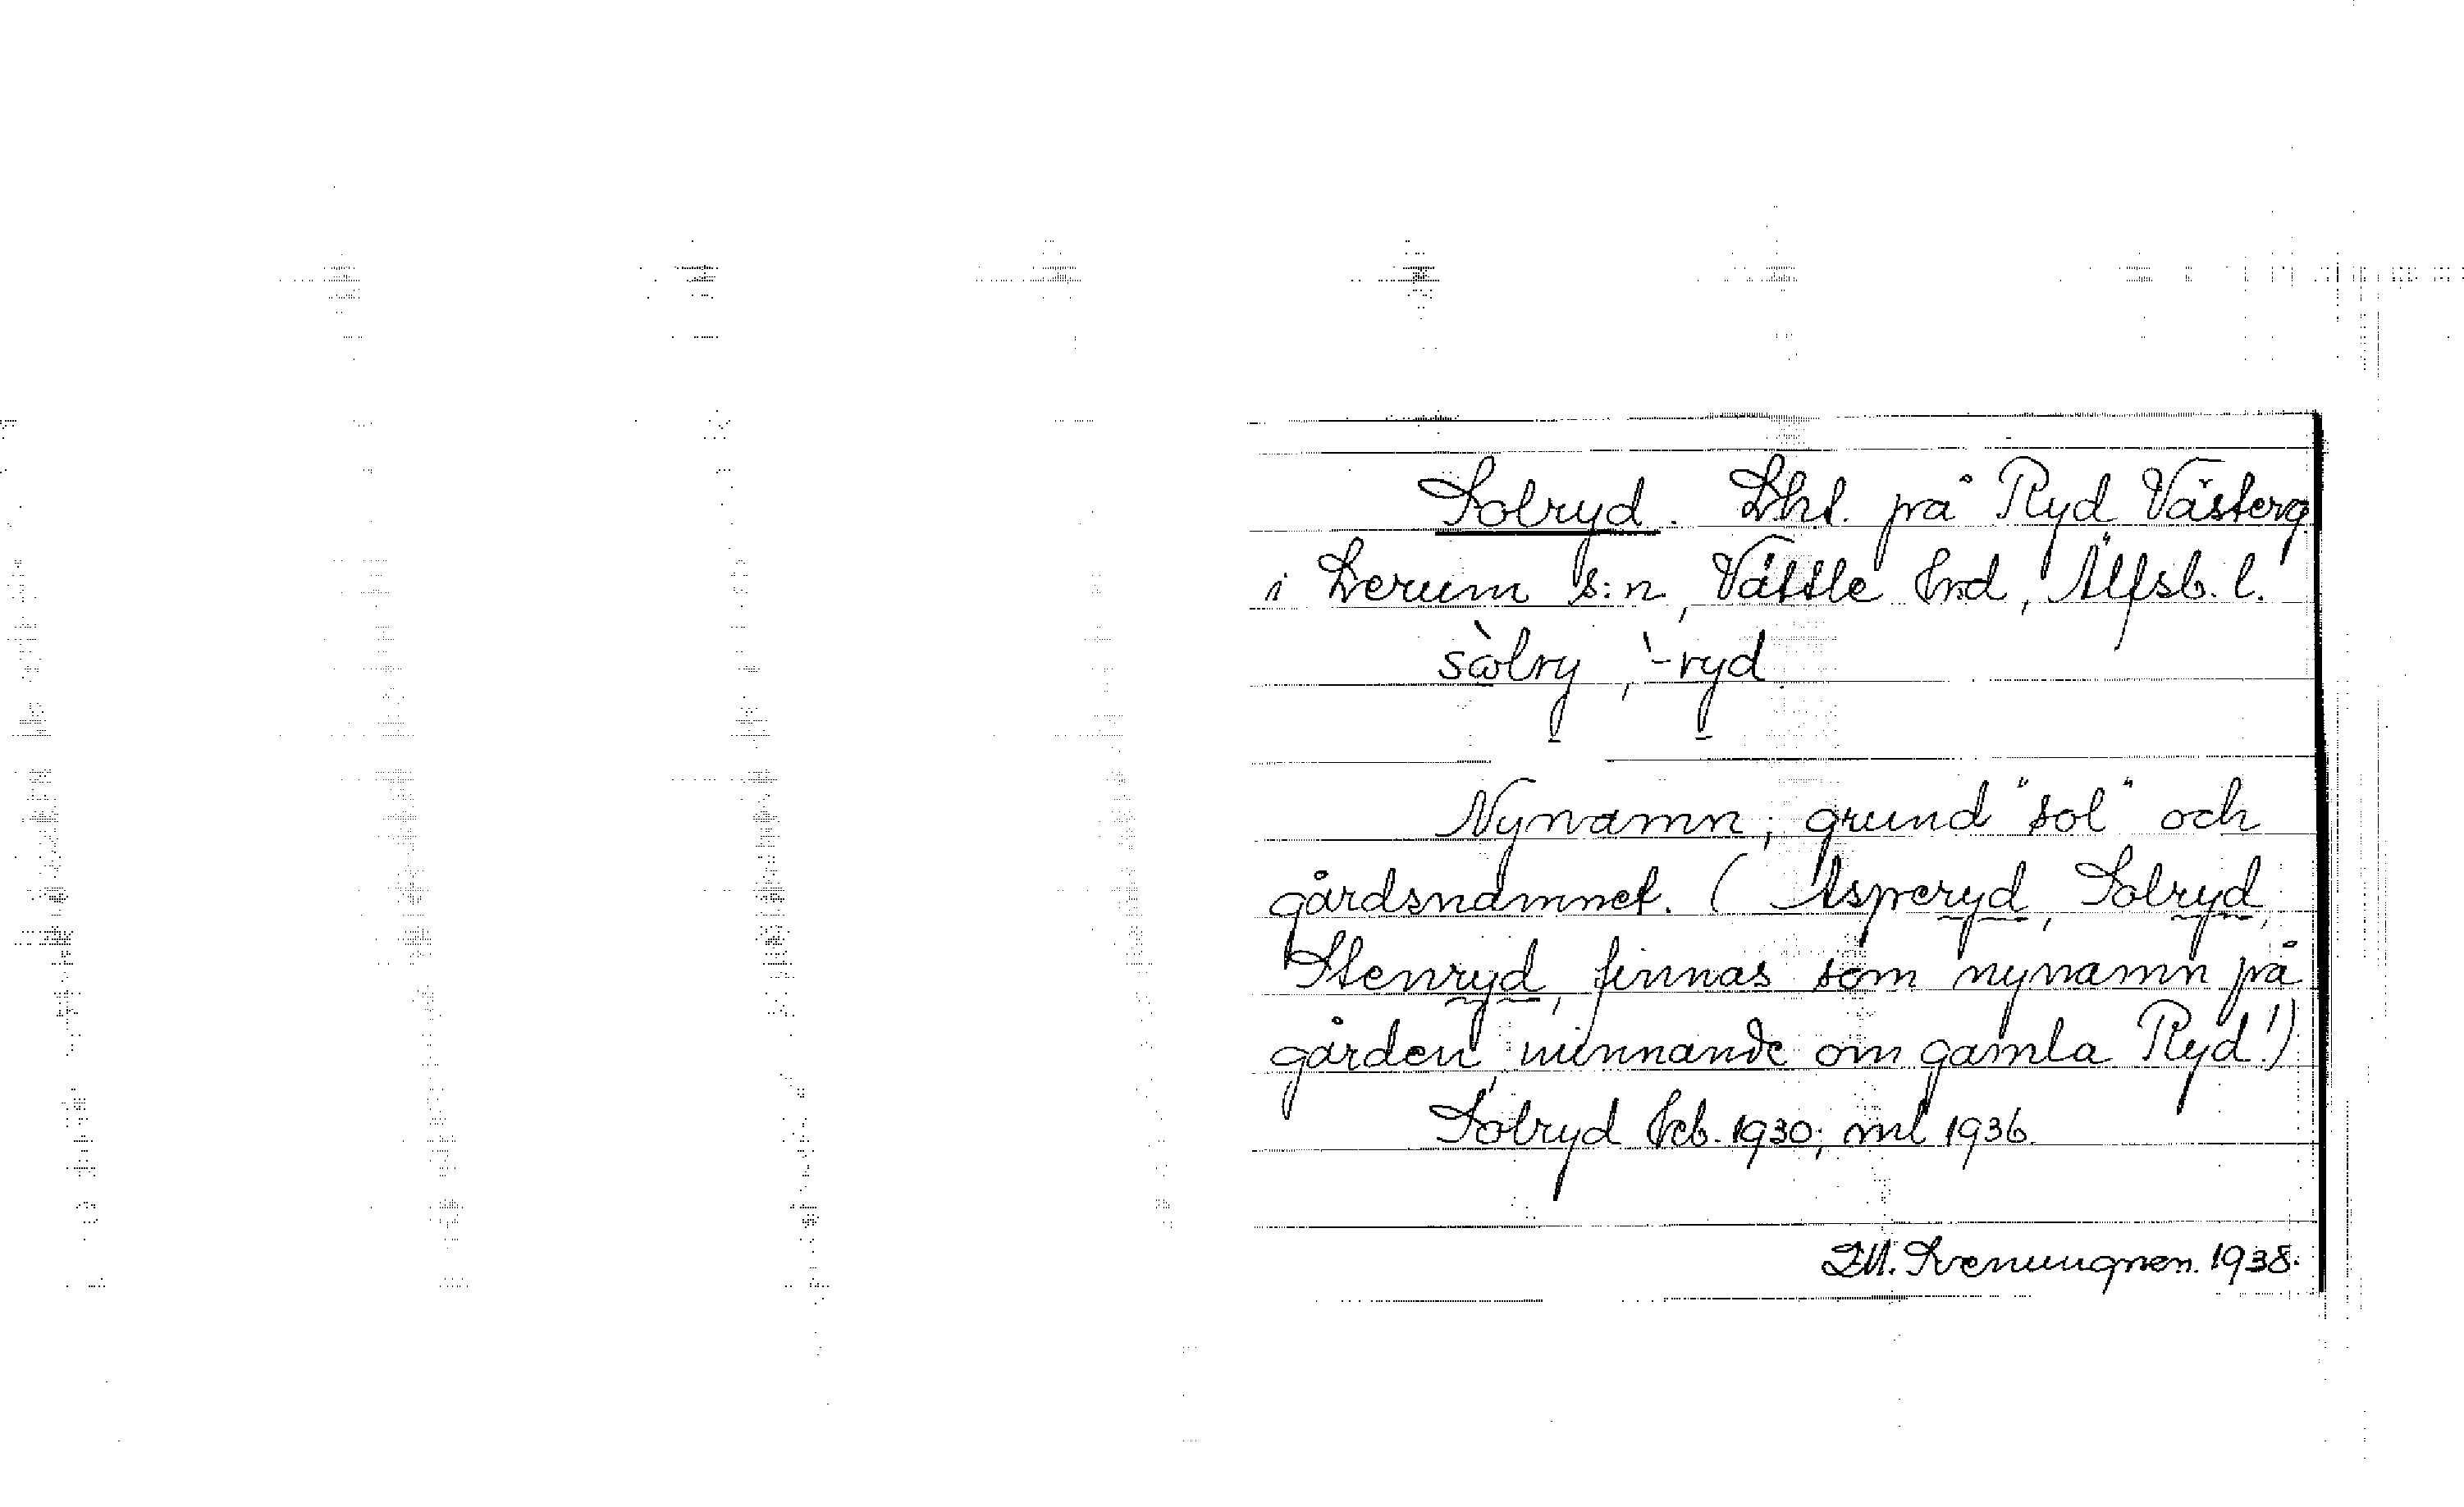 Solryd. Lht. på Ryd Västerg.
i Lerum s:n, Vättle hrd, Älfsb. l.
sòlry, '-ryd
Nynamn; grund "sol" och
gårdsnamnet. (Asperyd, Solryd,
Stenryd, finnas som nynamn på
gården, minnande om gamla Ryd!)
Solryd Feb. 1930; ml 1936.
1938.